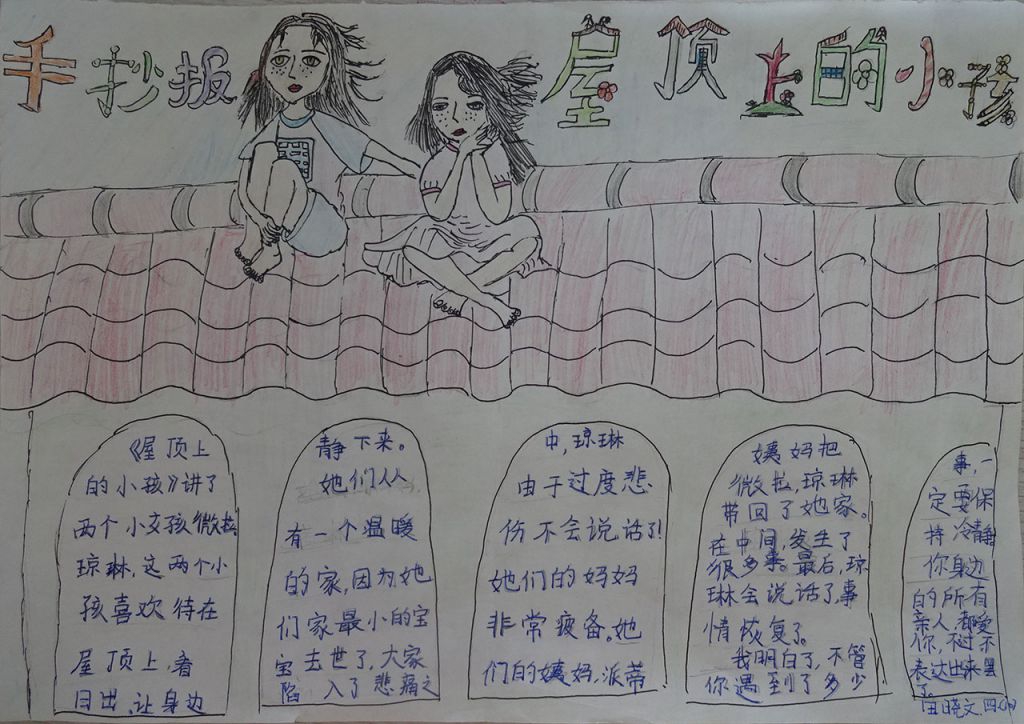 手抄报 屋顶上的小孩
《屋顶上
的小孩》讲了
两个小女孩微拉
琼琳,这两个小
孩喜欢待在
屋顶上,看
日出,让身边
静下来。
她们从
有一个温暖
的家,因为她
们家最小的宝
宝去世了,大家
陷入了悲痛之
中,琼琳
由于过度悲
伤不会说话了!
她们的妈妈
非常疲备。她
们的姨妈,派蒂
姨妈把
微拉,琼琳
带回了她家。
在中间,发生了
很多事。最后,琼
琳会说话了,事
情恢复了。
我明白了,不管
你遇到了多少
事,一
定要保
持冷静
你身边
的所有
亲人,都爱
你,不过不
表达出来罢
了。
田晓文 四